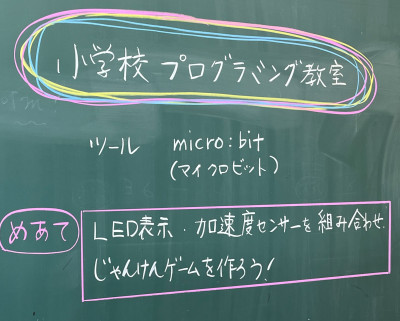 小学校 プログラミング教室
ツール micro:bit
(マイクロビット)
めあて
LED表示・加速度センサーを組み合わせ、
じゃんけんゲームを作ろう!